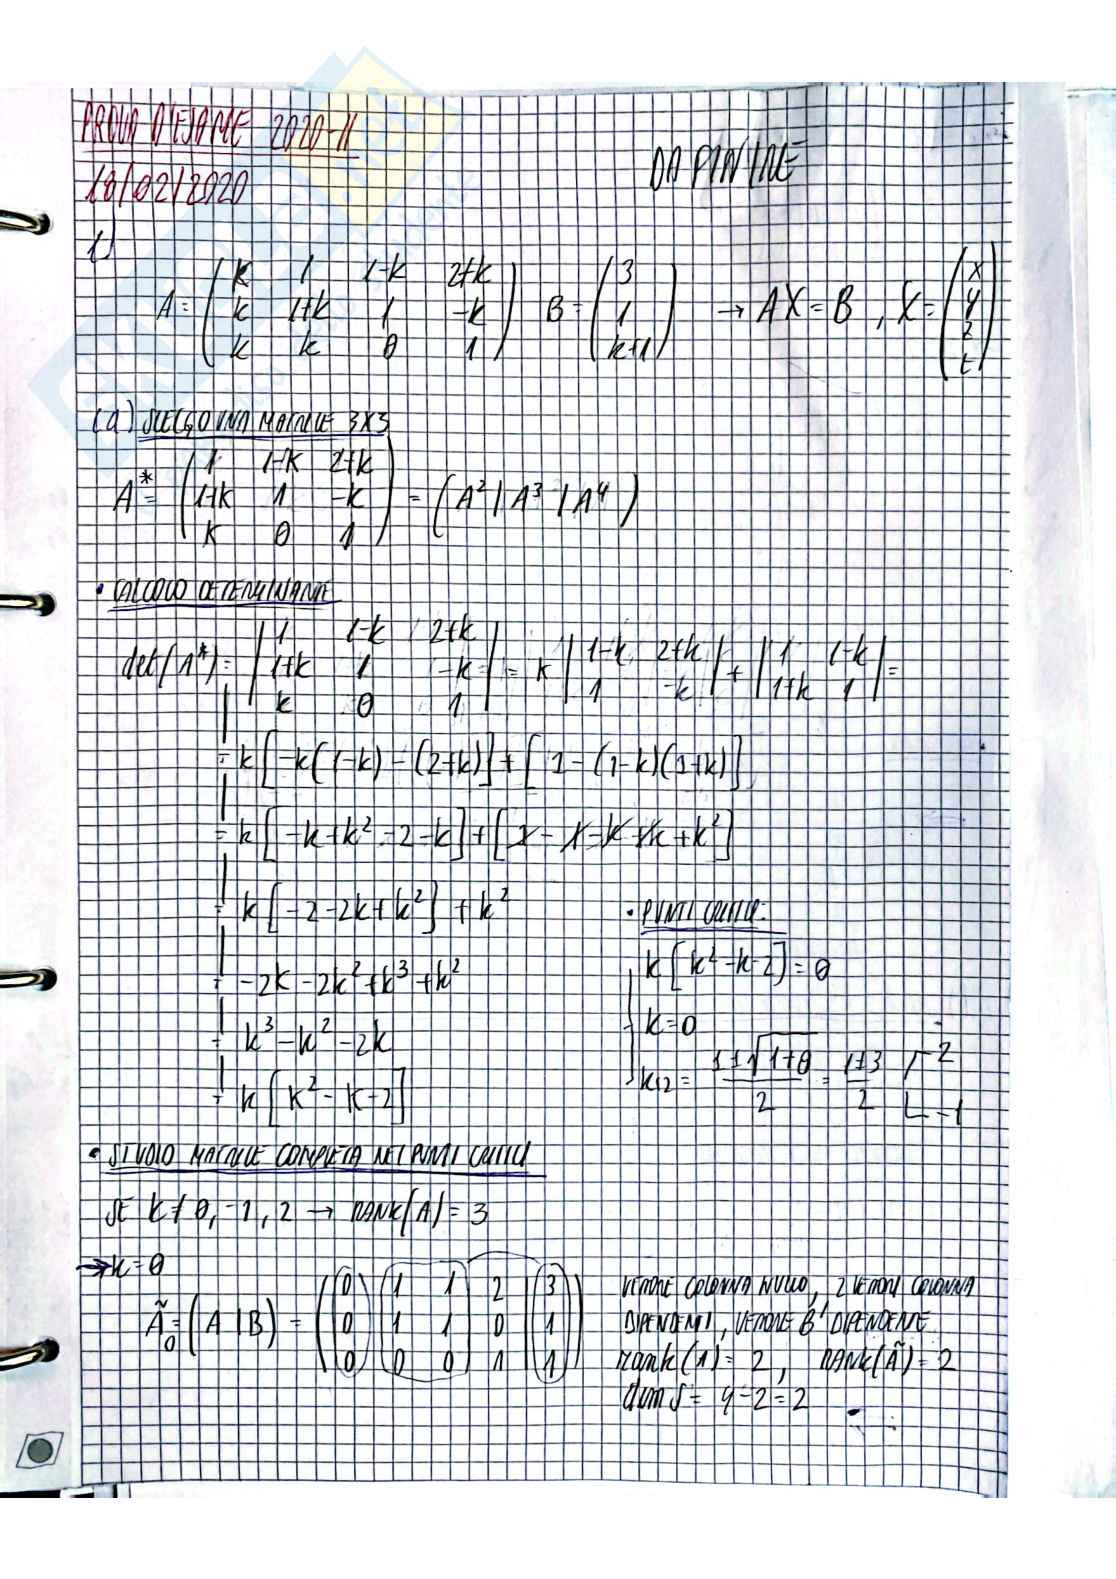 PROVA D'ESAME 2020-II
18/02/2020
DA FINIRE
1)
A = ( k 1 1-k 2+k
k 1+k 1 -k
k k 0 1 ) B = ( 3
1
k+1 ) → AX = B , X = ( x
y
z
t )
(a) SCELGO UNA MATRICE 3X3
A* = ( 1 1-k 2+k
1+k 1 -k
k 0 1 ) = ( A² | A³ | A⁴ )
• CALCOLO DETERMINANTE
det(A*) = | 1 1-k 2+k
1+k 1 -k
k 0 1 | = k | 1-k 2+k
1 -k | + | 1 1-k
1+k 1 | =
= k [ -k(1-k) - (2+k) ] + [ 1 - (1-k)(1+k) ]
= k [ -k + k² - 2 - k ] + [ 1 - 1 - k + k + k² ]
= k [ -2 - 2k + k² ] + k²
= -2k - 2k² + k³ + k²
= k³ - k² - 2k
= k [ k² - k - 2 ]
• PUNTI CRITICI:
k [ k² - k - 2 ] = 0
k = 0
k12 = 1±√1+8 / 2 = 1±3 / 2 2
-1
• STUDIO MATRICE COMPLETA NEI PUNTI CRITICI
SE k ≠ 0, -1, 2 → RANK(A) = 3
→ k = 0
Ã0 = ( A | B ) = ( 0 1 1 2 | 3
0 1 1 0 | 1
0 0 0 1 | 1 )
VETTORE COLONNA NULLO, 2 VETTORI COLONNA
DIPENDENTI, VETTORE B' DIPENDENTE
rank(A) = 2 , RANK(Ã) = 2
dim S = 4 - 2 = 2